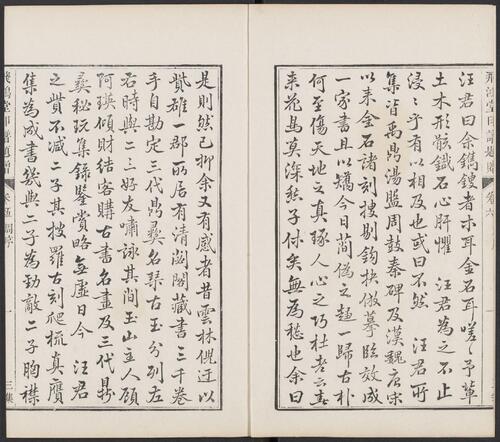 汪君曰余鐫鏤者木耳金石耳嗟〻予輩
土木形骸鐵石心肝懼 汪君為之不止
浸〻乎有以相及也或曰不然 汪君所
集皆禹鼎湯盤周鼓秦碑及漢魏唐宋
以来金石諸刻搜剔鉤抉倣摹臨效成
一家書且以矯今日偽之趨一歸古朴
何至傷天地之真琢人心之巧杜老云春
来花鳥莫深愁子付矣無為愁也余曰
是則然已抑余又有感者昔雲林倪迂以
貲雄一郡所居有清閟閣藏書三千卷
手自勘定三代鼎彝名琴古玉分列左
右時與二三好友嘯詠其間玉山主人顧
阿瑛傾財結客購古書名畫及三代鼎
彝秘玩集錄鑒賞略無虛日今 汪君
之貲不减二子其搜羅古刻爬梳真贗
集為成書幾與二子為勁敵二子胸襟
飛鴻堂印譜 卷五 一 三集